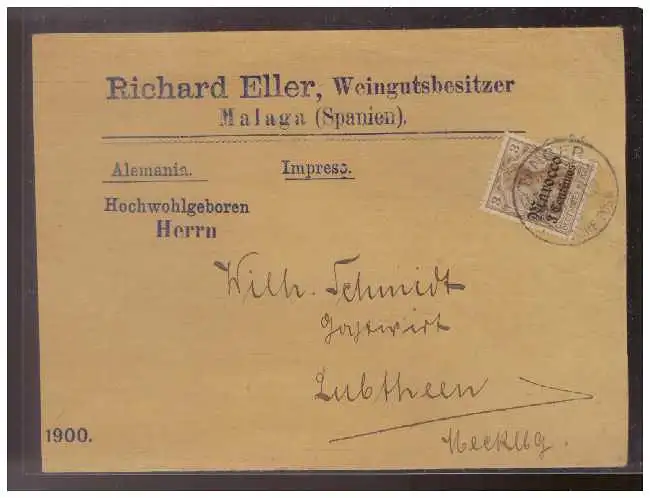 Richard Eller, Weingutsbesitzer
Malaga (Spanien).
Alemania. Impreso.
3 3
Marocco
3 Centimos
Hochwohlgeboren
Herrn
Wilh. Schmidt
Gastwirt
Lubtheen
Mecklbg.
1900.